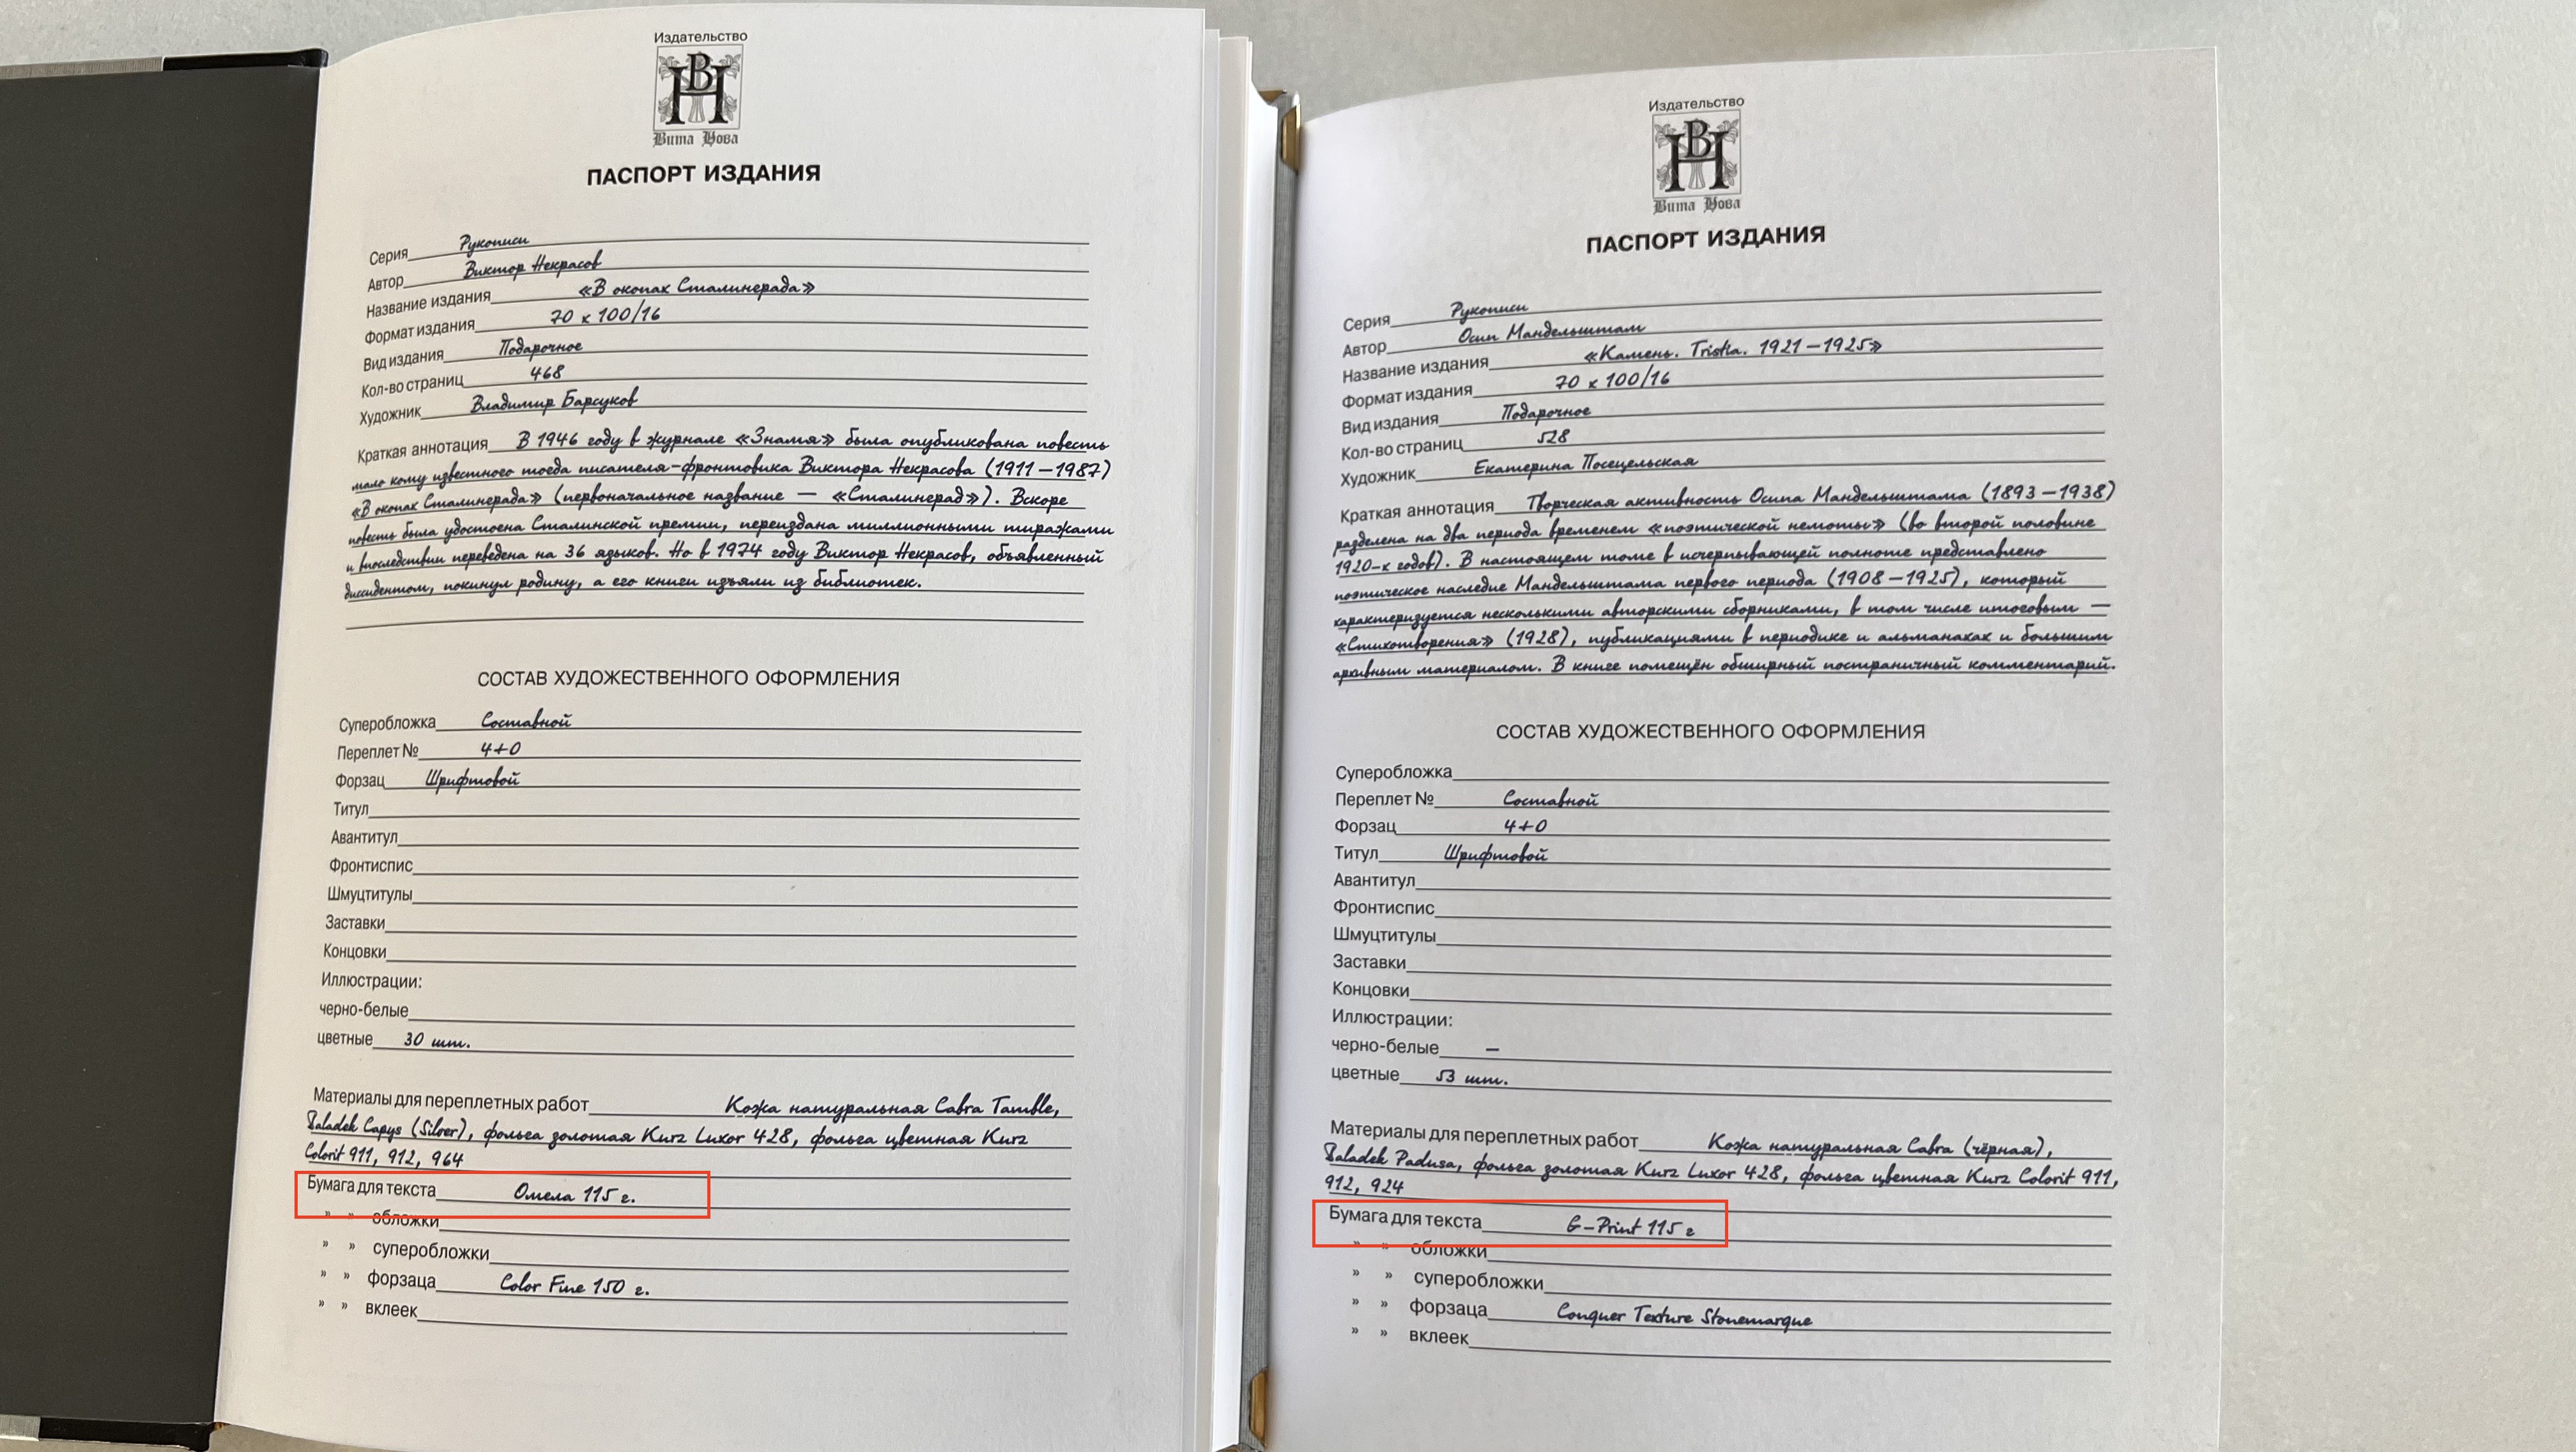 Издательство
ВН
Вита Нова
ПАСПОРТ ИЗДАНИЯ
Серия Рукописи
Автор Виктор Некрасов
Название издания «В окопах Сталинграда»
Формат издания 70 х 100/16
Вид издания Подарочное
Кол-во страниц 468
Художник Владимир Барсуков
Краткая аннотация В 1946 году в журнале «Знамя» была опубликована повесть
мало кому известного тогда писателя-фронтовика Виктора Некрасова (1911—1987)
«В окопах Сталинграда» (первоначальное название — «Сталинград»). Вскоре
повесть была удостоена Сталинской премии, переиздана миллионными тиражами
и впоследствии переведена на 36 языков. Но в 1974 году Виктор Некрасов, объявленный
диссидентом, покинул родину, а его книги изъяли из библиотек.
СОСТАВ ХУДОЖЕСТВЕННОГО ОФОРМЛЕНИЯ
Суперобложка Составной
Переплет № 4+0
Форзац Шрифтовой
Титул
Авантитул
Фронтиспис
Шмуцтитулы
Заставки
Концовки
Иллюстрации:
черно-белые
цветные 30 шт.
Материалы для переплетных работ Кожа натуральная Cabra Tamble,
Baladek Capys (Silver), фольга золотая Kurz Luxor 428, фольга цветная Kurz
Colorit 911, 912, 964
Бумага для текста Омела 115 г.
» » обложки
» » суперобложки
» » форзаца Color Fine 150 г.
» » вклеек
Издательство
ВН
Вита Нова
ПАСПОРТ ИЗДАНИЯ
Серия Рукописи
Автор Осип Мандельштам
Название издания «Камень. Tristia. 1921—1925»
Формат издания 70 х 100/16
Вид издания Подарочное
Кол-во страниц 528
Художник Екатерина Посецельская
Краткая аннотация Творческая активность Осипа Мандельштама (1893—1938)
разделена на два периода временем «поэтической немоты» (во второй половине
1920-х годов). В настоящем томе в исчерпывающей полноте представлено
поэтическое наследие Мандельштама первого периода (1908—1925), который
характеризуется несколькими авторскими сборниками, в том числе итоговым —
«Стихотворения» (1928), публикациями в периодике и альманахах и большим
архивным материалом. В книге помещён обширный постраничный комментарий.
СОСТАВ ХУДОЖЕСТВЕННОГО ОФОРМЛЕНИЯ
Суперобложка
Переплет № Составной
Форзац 4+0
Титул Шрифтовой
Авантитул
Фронтиспис
Шмуцтитулы
Заставки
Концовки
Иллюстрации:
черно-белые —
цветные 53 шт.
Материалы для переплетных работ Кожа натуральная Cabra (чёрная),
Baladek Padusa, фольга золотая Kurz Luxor 428, фольга цветная Kurz Colorit 911,
912, 924
Бумага для текста G-Print 115 г
» » обложки
» » суперобложки
» » форзаца Conquer Texture Stonemarque
» » вклеек